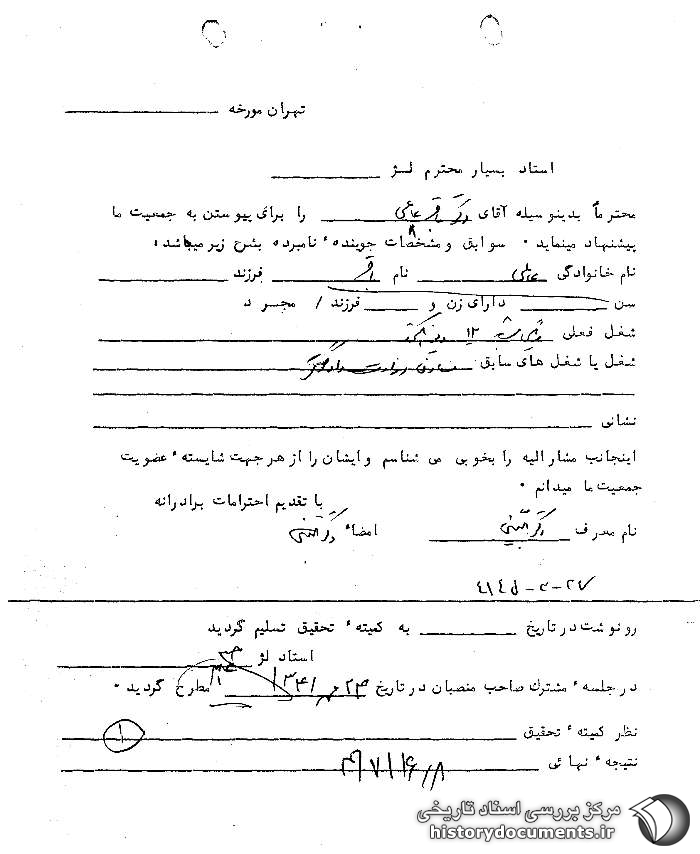 تهران مورخه
استاد بسیار محترم لژ
محترماً بدینوسیله آقای دکتر باقر عاملی را برای پیوستن به جمعیت ما
پیشنهاد مینماید ۰ سوابق و مشخصات جوینده ٔ نامبرده بشرح زیر میباشد:
نام خانوادگی عاملی نام باقر فرزند
سن دارای زن و فرزند / مجرد
شغل فعلی
شغل یا شغل های سابق وزارت دادگستری
نشانی
اینجانب مشارالیه را بخوبی می شناسم و ایشان را از هر جهت شایسته ٔ عضویت
جمعیت ما میدانم ۰
با تقدیم احترامات برادرانه
نام معرف دکتر امضاء دکتر
رونوشت در تاریخ به کمیته ٔ تحقیق تسلیم گردید
استاد لژ
در جلسه ٔ مشترک صاحب منصبان در تاریخ مطرح گردید ۰
نظر کمیته ٔ تحقیق
نتیجه ٔ نهائی
مرکز بررسی اسناد تاریخی
historydocuments.ir